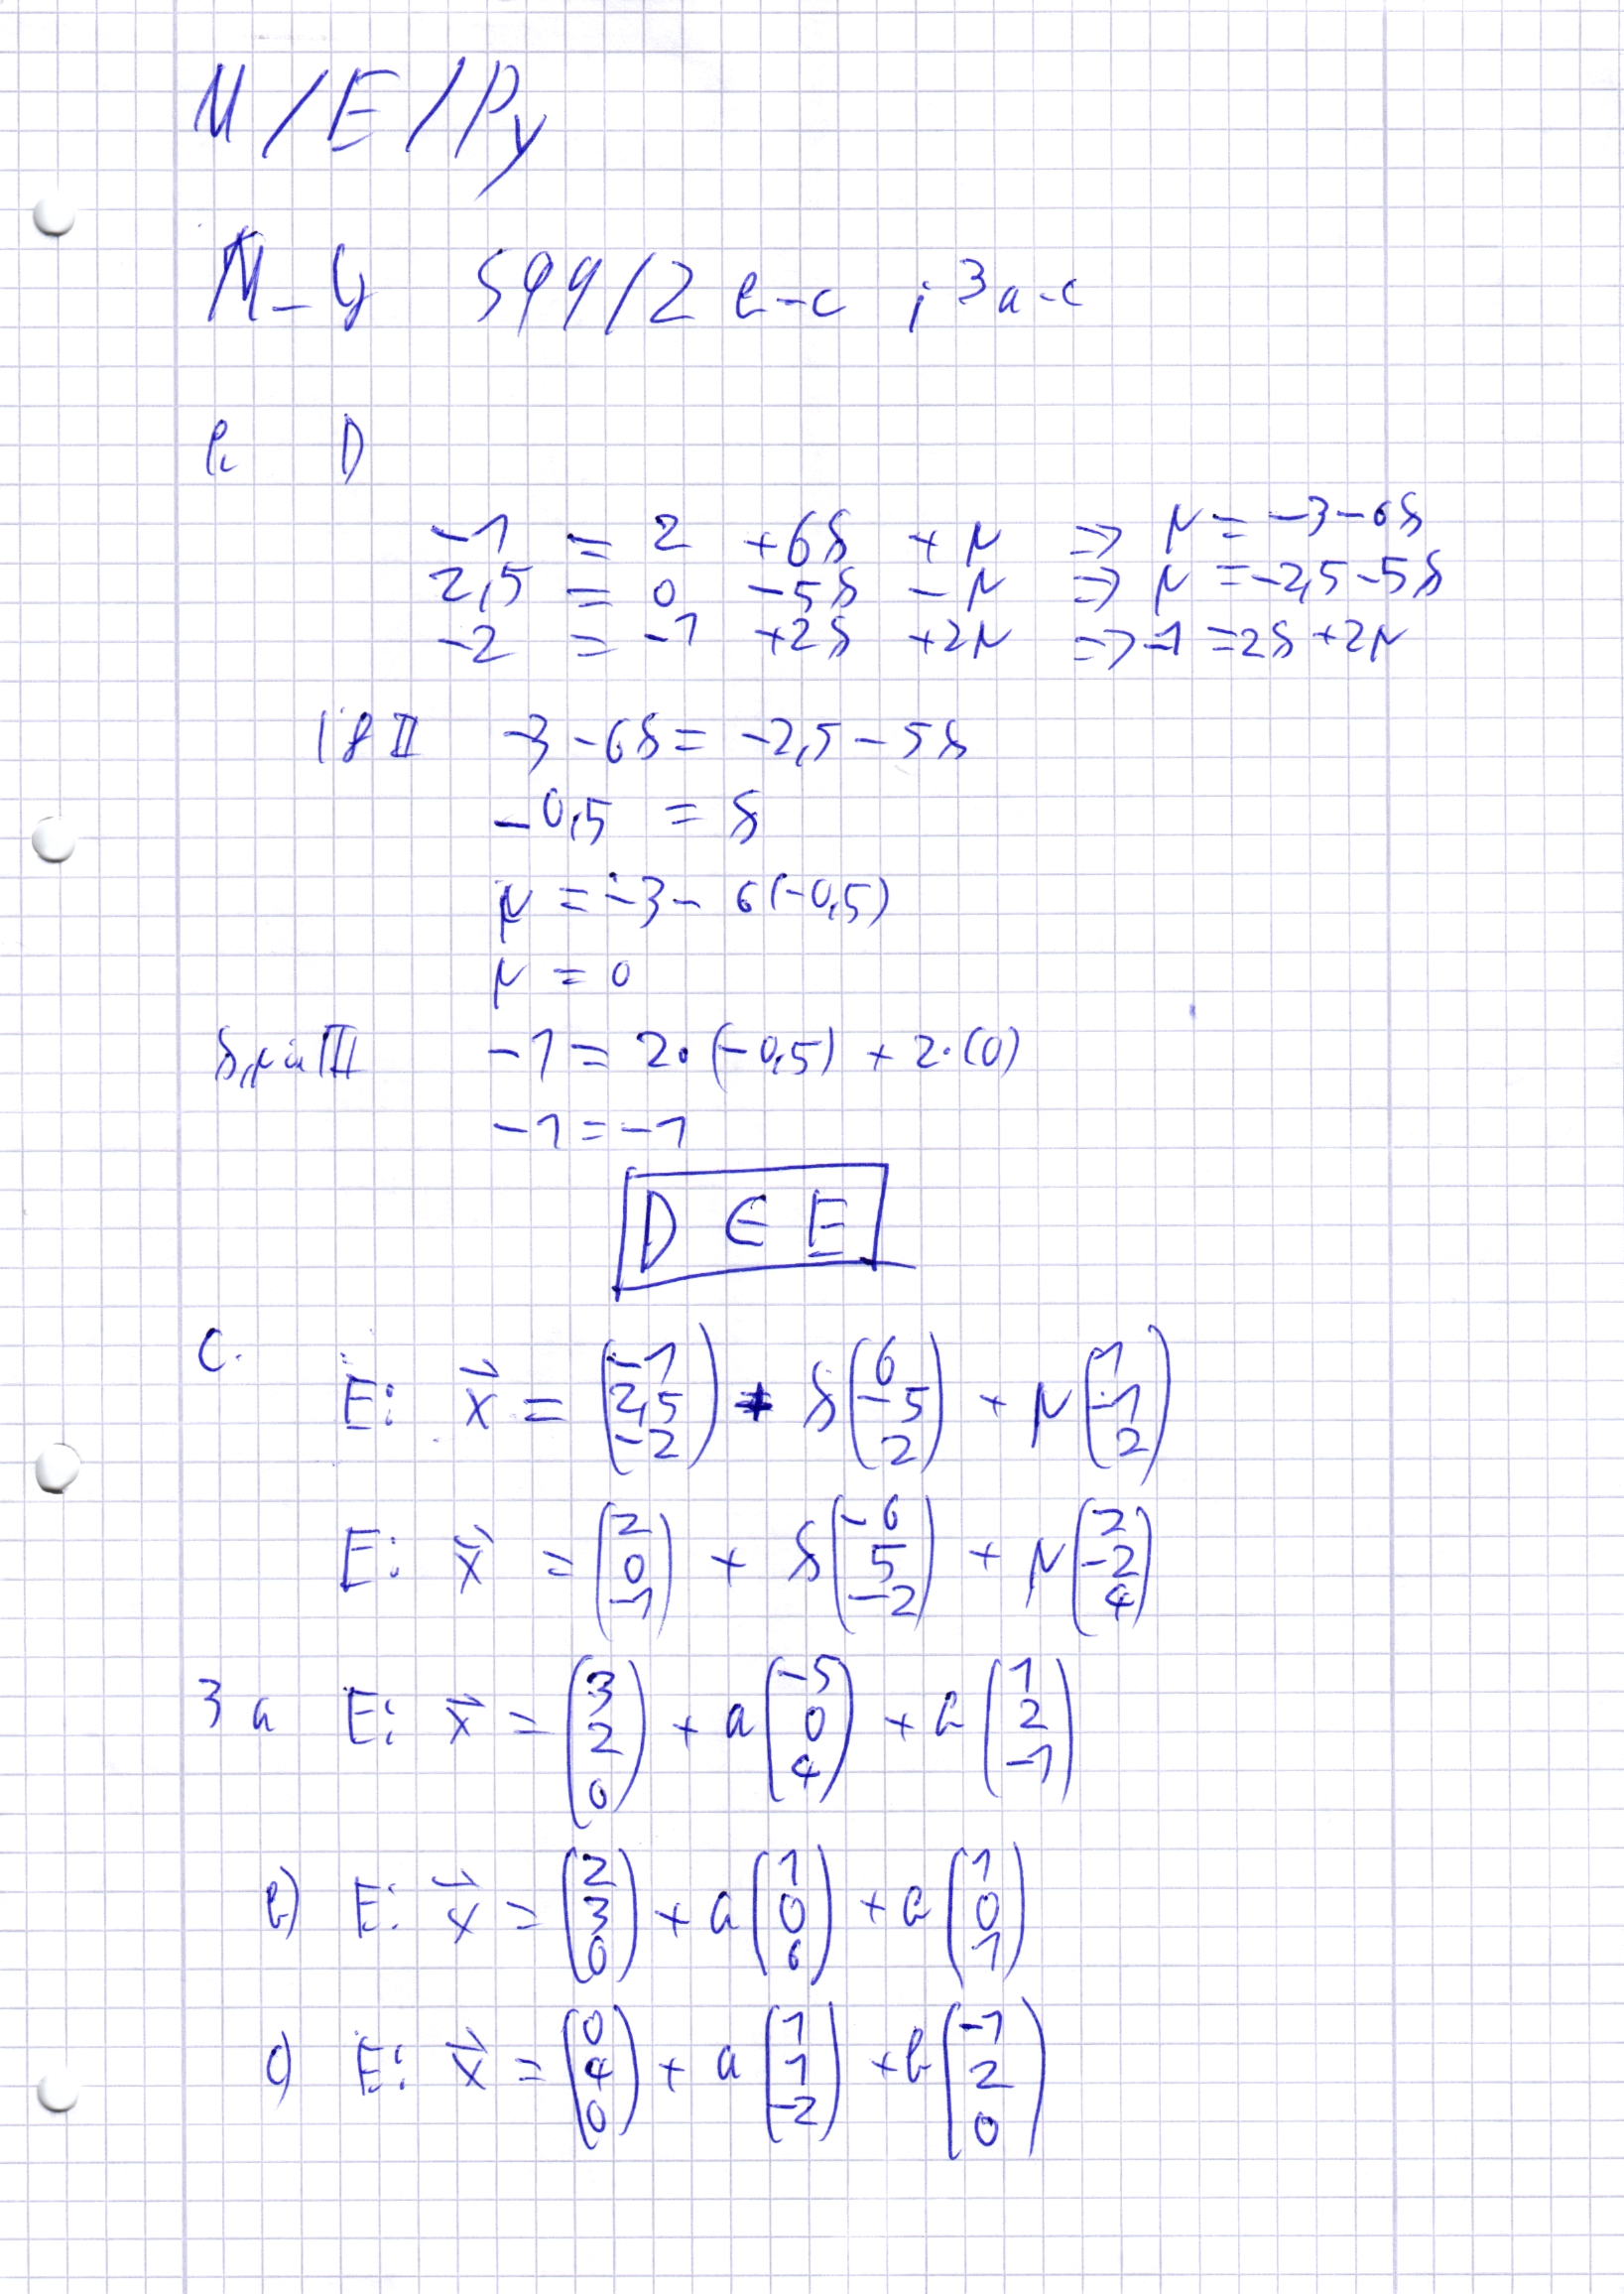 M/E/Py
M-Y S99/2 b-c ; 3a-c
b. D
-1 = 2 +6s + μ => μ = -3-6s
2,5 = 0 -5s - μ => μ = -2,5-5s
-2 = -1 +2s +2μ => -1 = 2s+2μ
I & II -3-6s = -2,5-5s
-0,5 = s
μ = -3-6(-0,5)
μ = 0
s,μ in III -1 = 2·(-0,5) + 2·(0)
-1 = -1
D ∈ E
c. E: x⃗ = (-1 2,5 -2) + s(6 -5 2) + μ(1 -1 2)
E: x⃗ = (2 0 -1) + s(-6 5 -2) + μ(2 -2 4)
3 a E: x⃗ = (3 2 0) + a(-5 0 4) + b(1 2 -1)
b) E: x⃗ = (2 3 0) + a(1 0 6) + b(1 0 1)
c) E: x⃗ = (0 4 0) + a(1 1 -2) + b(-1 2 0)